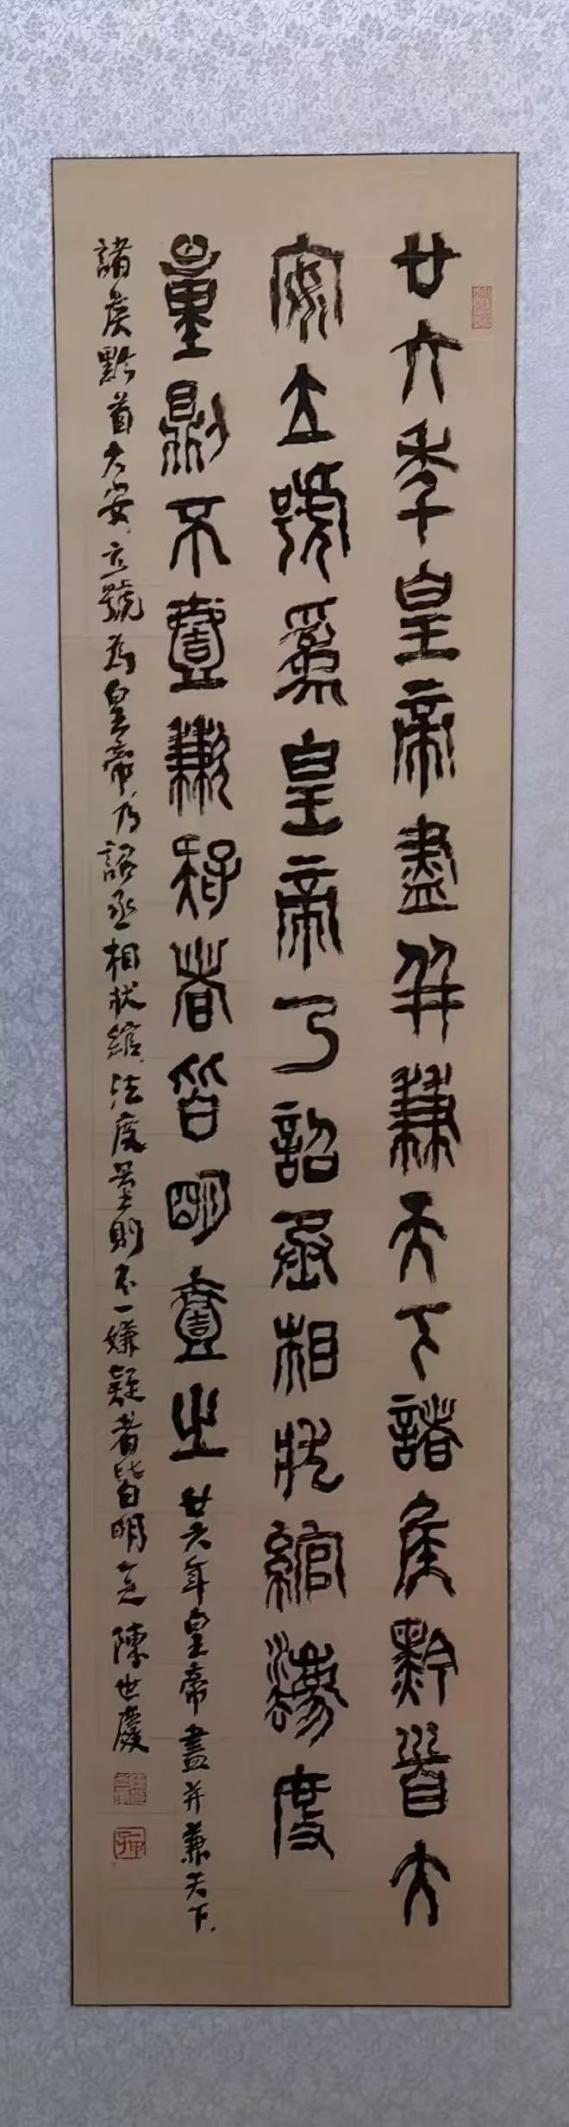 廿六年皇帝盡并兼天下諸矦黔首大
安立號爲皇帝乃詔丞相狀綰灋度
量則不壹歉疑者皆明壹之
廿六年皇帝盡并兼天下
諸矦黔首大安立號為皇帝乃詔丞相狀綰法度量則不一嫌疑者皆明之陳世慶